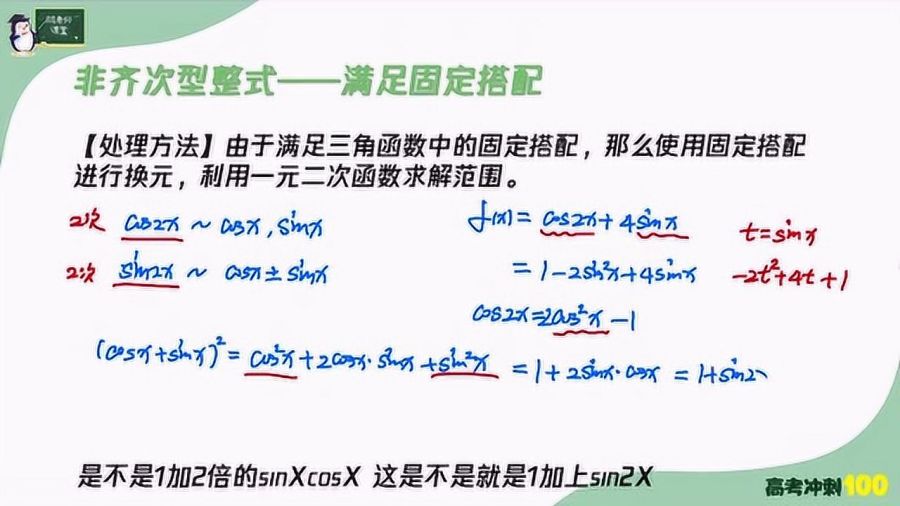 非齐次型整式——满足固定搭配
【处理方法】由于满足三角函数中的固定搭配，那么使用固定搭配
进行换元，利用一元二次函数求解范围。
2次 cos2x ~ cosx, sinx
f(x) = cos2x + 4sinx
t = sinx
2次 sin2x ~ cosx ± sinx
= 1 - 2sin²x + 4sinx
-2t² + 4t + 1
cos2x = 2cos²x - 1
(cosx + sinx)² = cos²x + 2cosx · sinx + sin²x = 1 + 2sinx · cosx = 1 + sin2
是不是1加2倍的sinXcosX 这是不是就是1加上sin2X
高考冲刺100